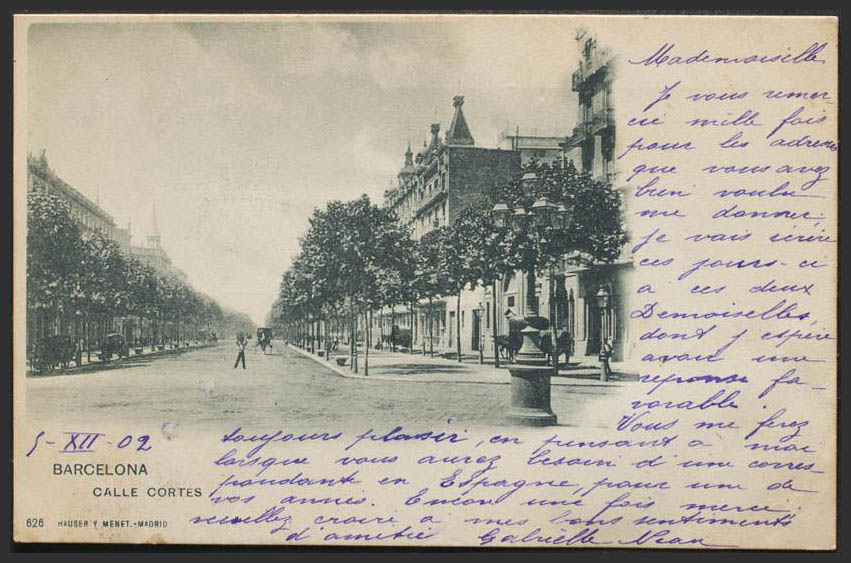 Mademoiselle
Je vous remer-
cie mille fois
pour les adresses
que vous avez
bien voulu
me donner,
je vais écrire
ces jours-ci
a ces deux
Demoiselles,
dont j'espère
avoir une
reponse fa-
vorable.
Vous me ferez
toujours plaisir, en pensant a moi
lorsque vous aurez besoin d'une corres
pondante en Espagne, pour une de
vos amies. Encore une fois merci,
veuillez croire a mes bons sentiments
d'amitié Gabrielle
5-XII-02
BARCELONA
CALLE CORTES
626 HAUSER Y MENET.-MADRID